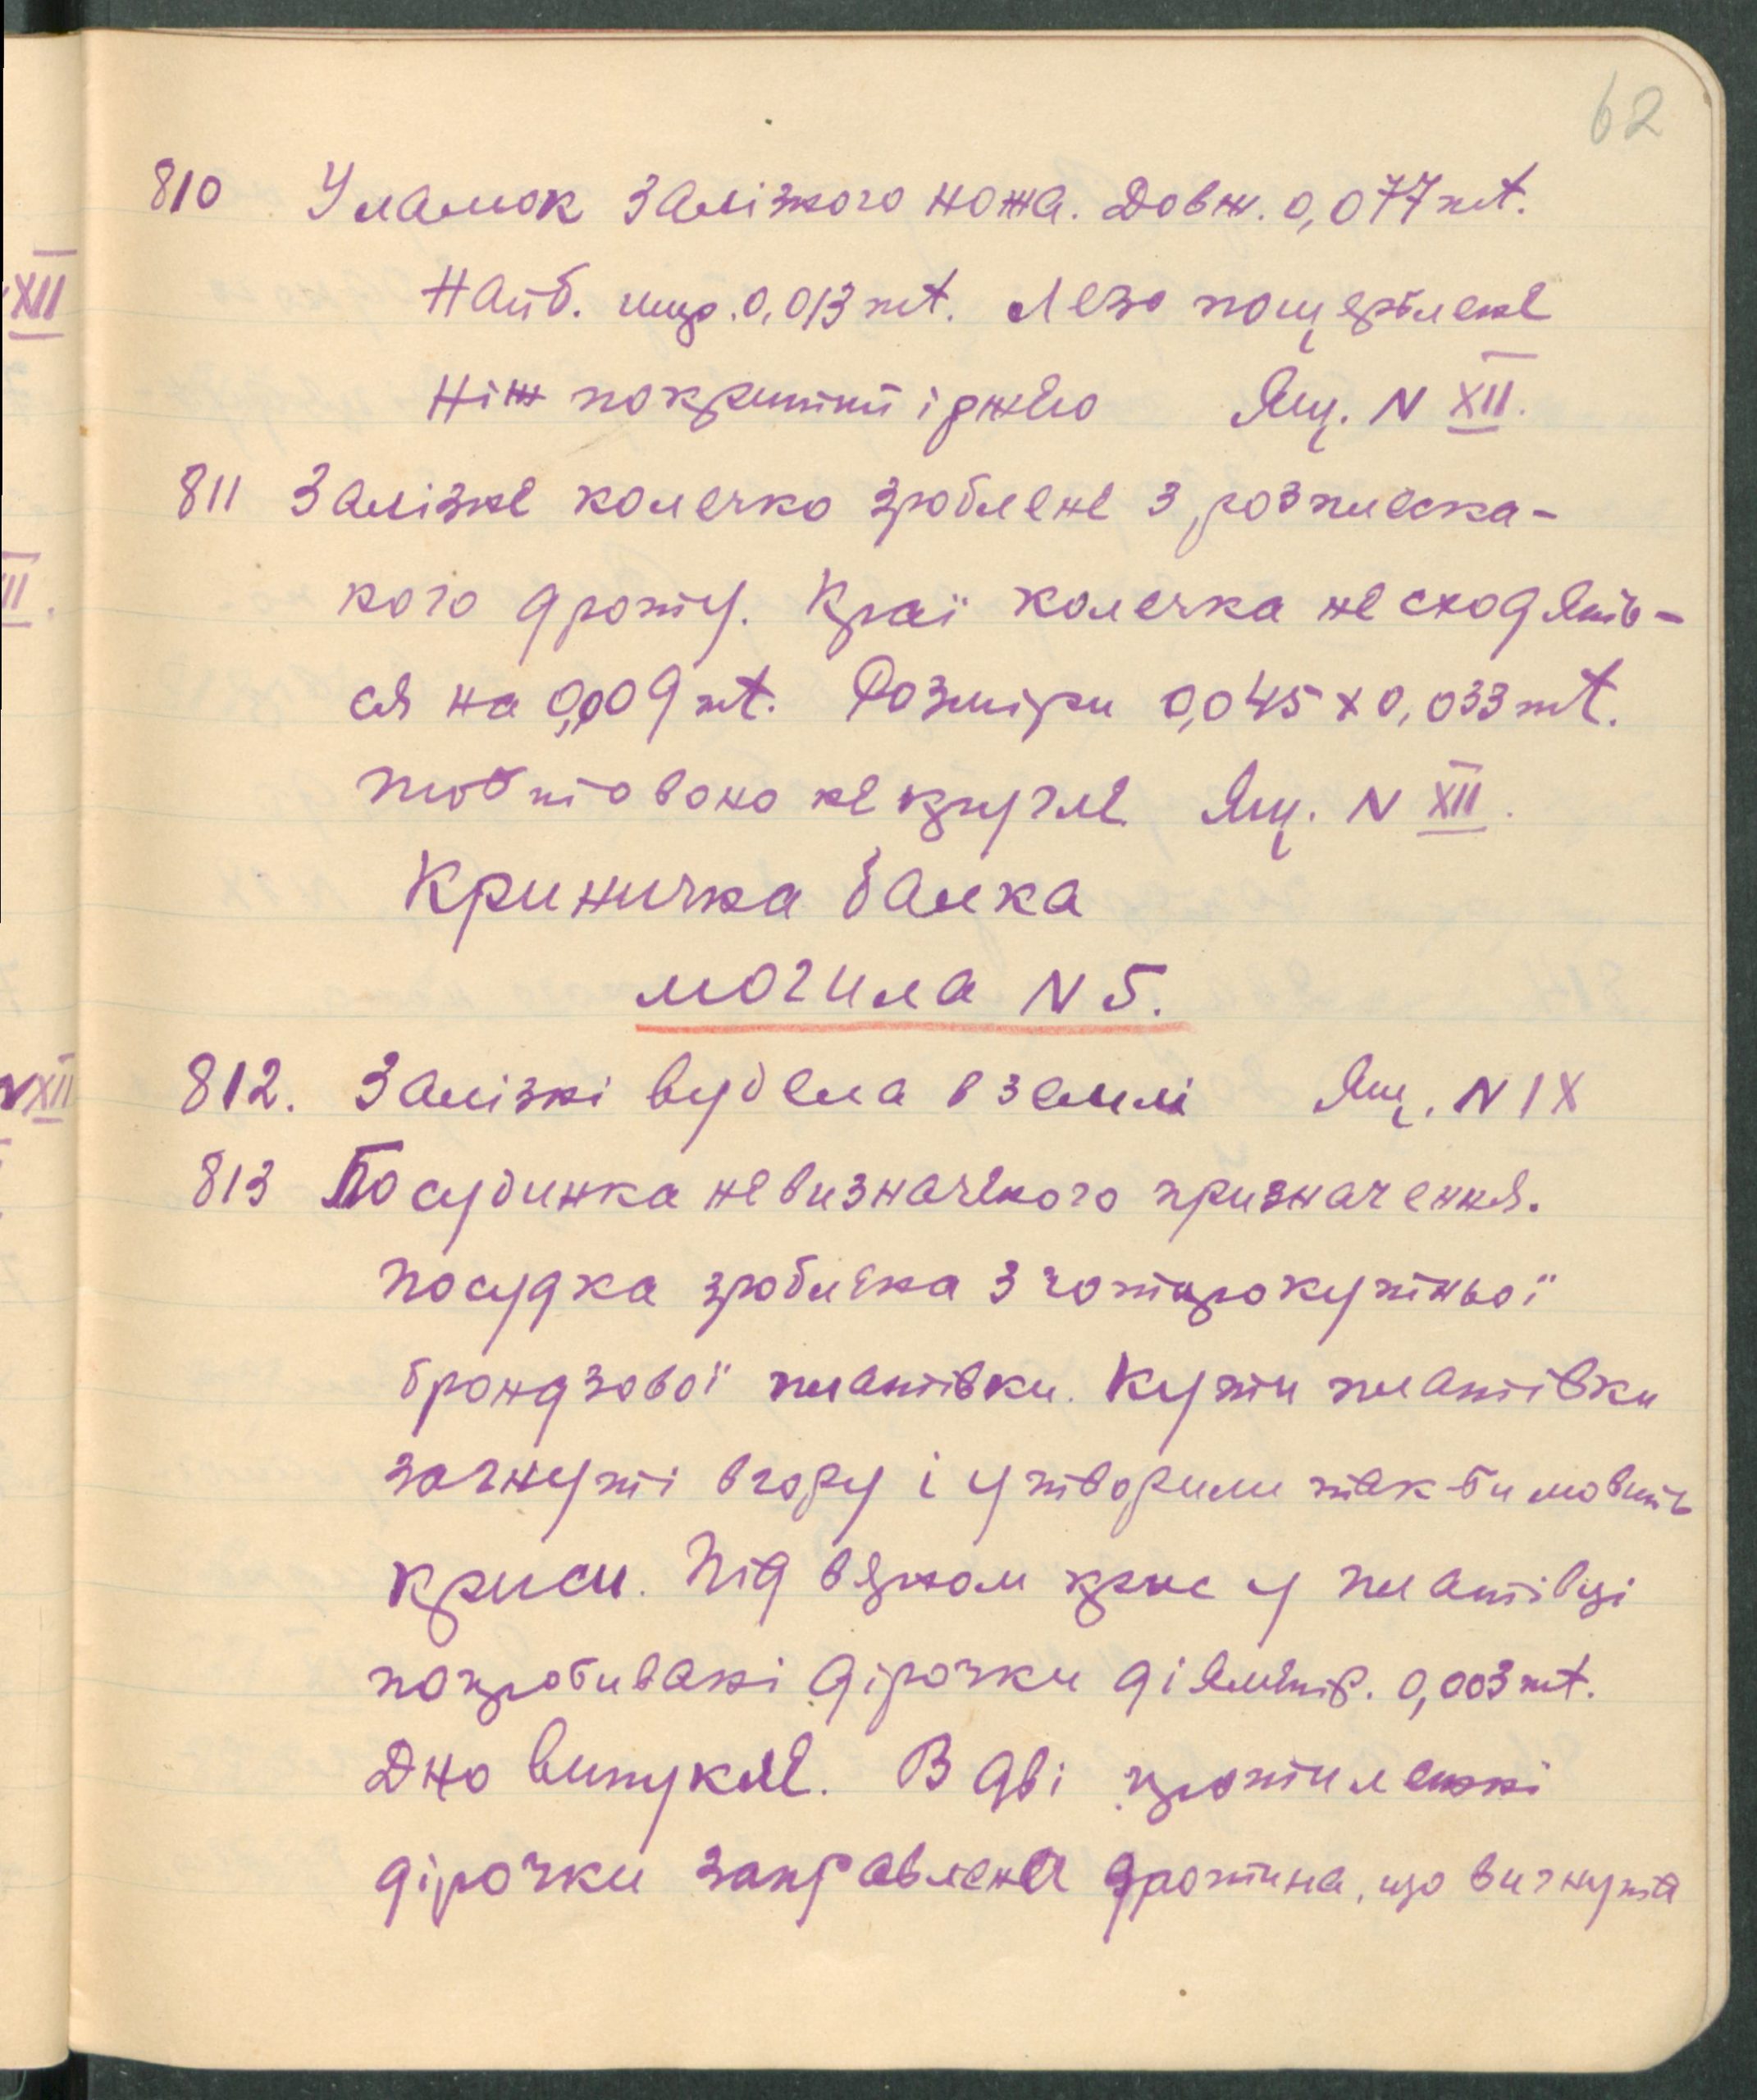 62
810 Уламок залізного ножа. Довж. 0,077 mt.
Найб. шир. 0,013 mt. Лезо пощерблене
Ніж покритий іржею Ящ. N XII.
811 Залізне колечко зроблене з розплеска-
ного дроту. Краї колечка не сходять-
ся на 0,009 mt. Розміри 0,045 x 0,033 mt.
тобто воно не кругле Ящ. N XII.
Кринична балка
могила N 5.
812. Залізні вудела в землі Ящ. N IX
813 Посудинка невизначеного призначення.
Посудка зроблена з чотирокутньої
брондзової платівки. Кути платівки
загнуті вгору і утворили так-би мовить
криси. Під верхом крис у платівці
попробивані дірочки діяметр. 0,003 mt.
Дно випукле. В дві протилежні
дірочки заправлена дротина, що вигнута
XII
II.
N XII